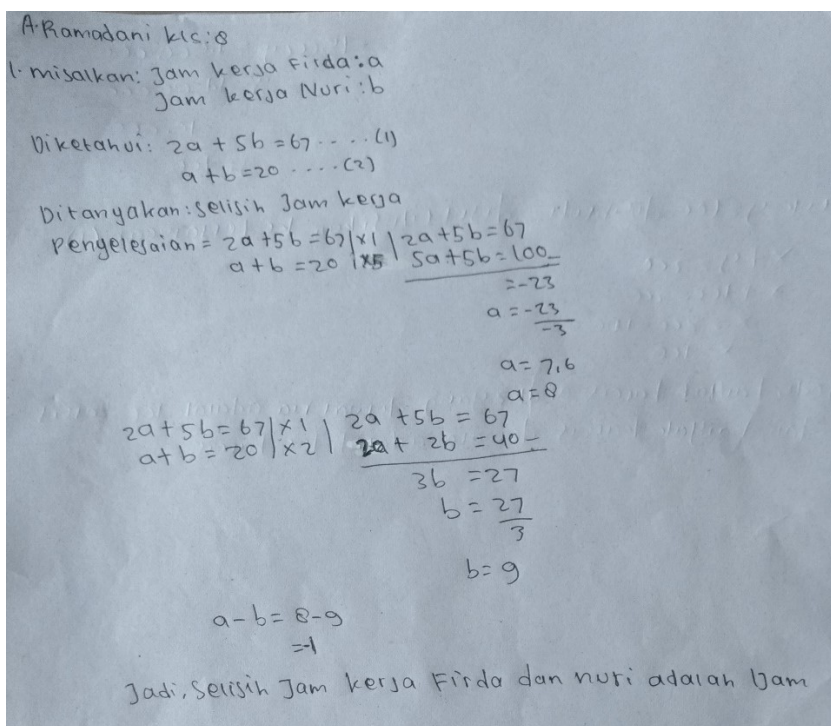 A. Ramadani kls: 8
1. misalkan: Jam kerja Firda: a
Jam kerja Nuri: b
Diketahui: 2a + 5b = 67 .... (1)
a + b = 20 .... (2)
Ditanyakan: selisih Jam kerja
Penyelesaian = 2a + 5b = 67 | x1 | 2a + 5b = 67
a + b = 20 | x5 | 5a + 5b = 100 -
= -23
a = -23
-3
a = 7,6
a = 8
2a + 5b = 67 | x1 | 2a + 5b = 67
a + b = 20 | x2 | 2a + 2b = 40 -
3b = 27
b = 27
3
b = 9
a - b = 8 - 9
= -1
Jadi, selisih Jam kerja Firda dan nuri adalah 1Jam